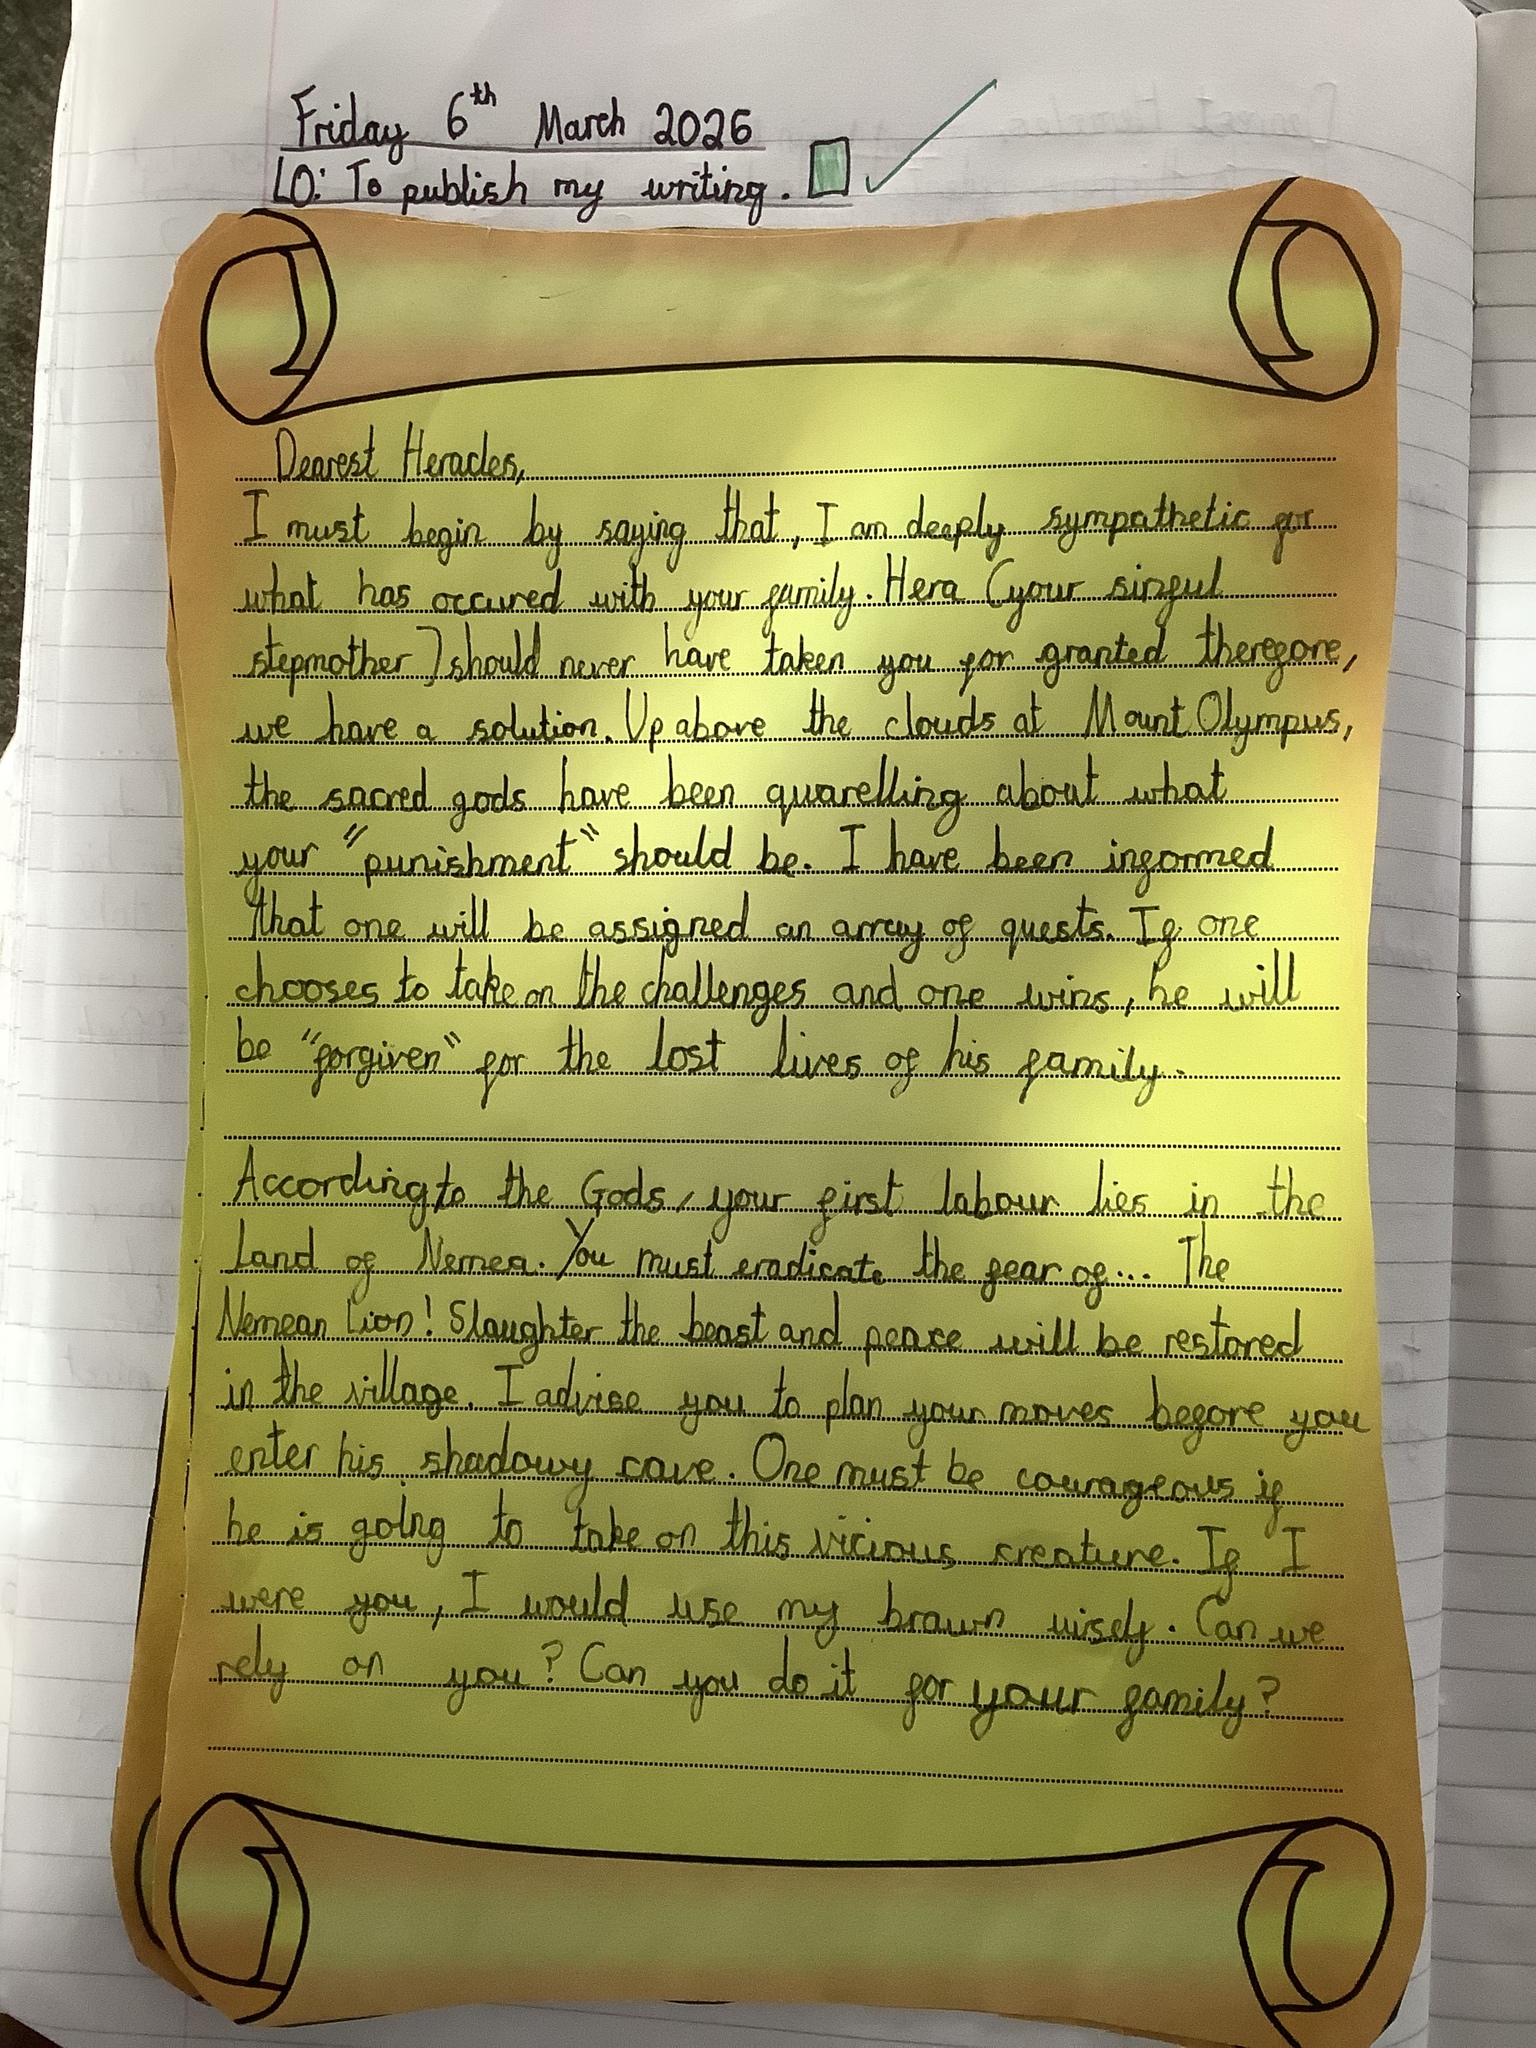 Friday 6th March 2026
LO: To publish my writing.
Dearest Heracles,
I must begin by saying that, I am deeply sympathetic for
what has occured with your family. Hera (your sinful
stepmother) should never have taken you for granted therefore,
we have a solution. Up above the clouds at Mount Olympus,
the sacred gods have been quarelling about what
your "punishment" should be. I have been informed
that one will be assigned an array of quests. If one
chooses to take on the challenges and one wins, he will
be "forgiven" for the lost lives of his family.
According to the Gods, your first labour lies in the
land of Nemea. You must eradicate the fear of... The
Nemean Lion! Slaughter the beast and peace will be restored
in the village. I advise you to plan your moves before you
enter his shadowy cave. One must be courageous if
he is going to take on this vicious creature. If I
were you, I would use my brawn wisely. Can we
rely on you? Can you do it for your family?